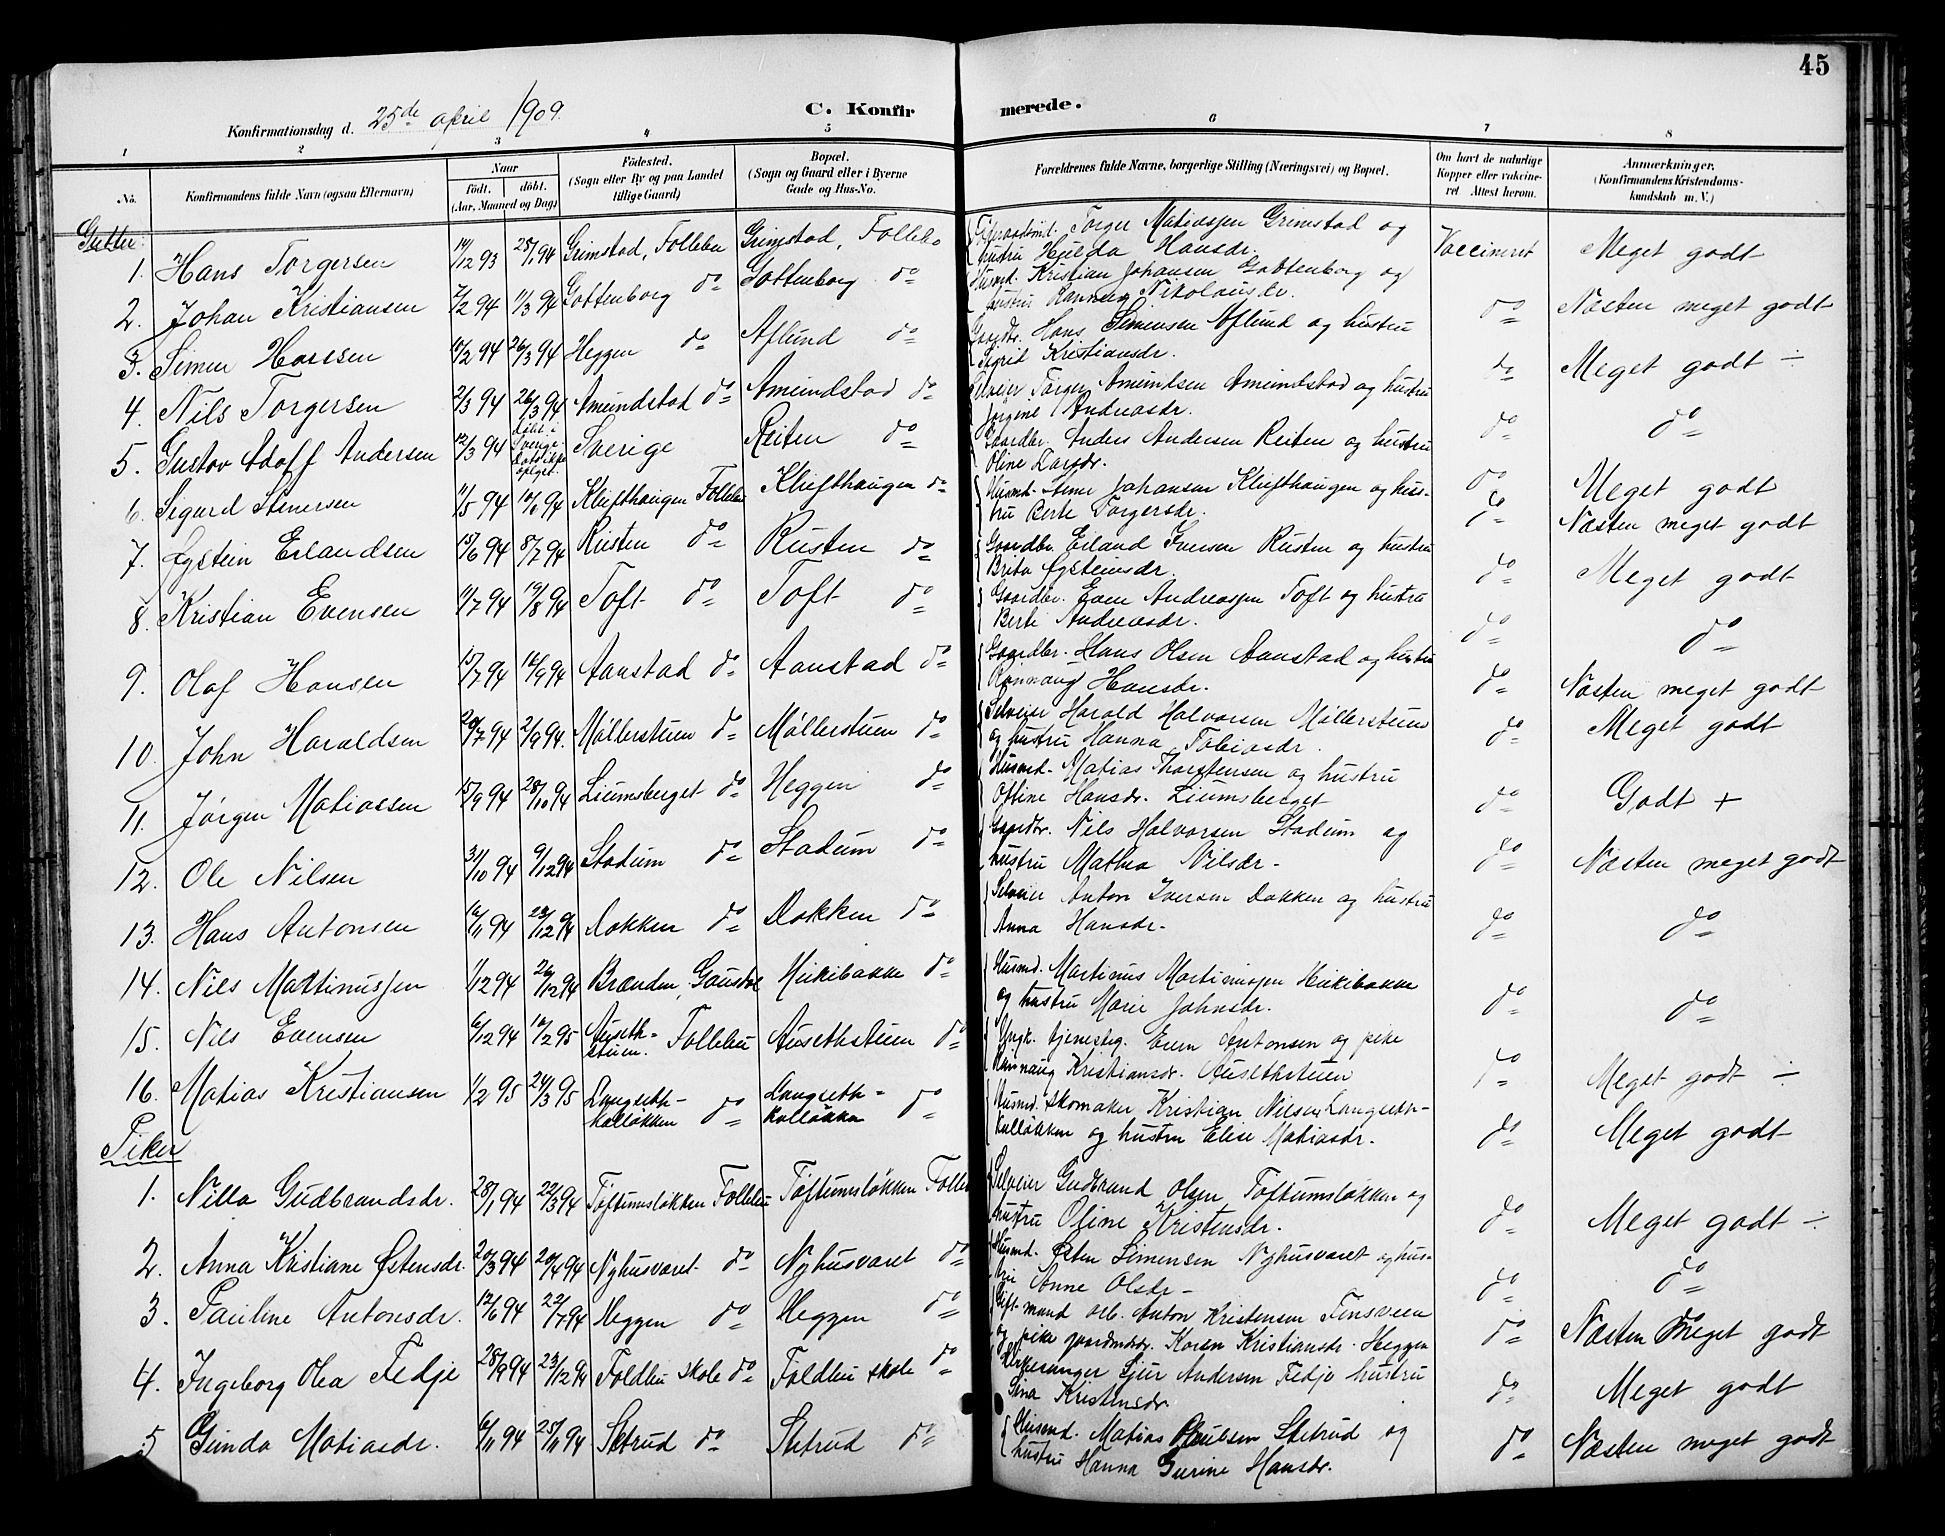 45
Konfirmationsdag d. 25de april 1909.
C. Konfirmerede.
1 2 3 4 5 6 7 8
No.
Konfirmandens fulde Navn (ogsaa Efternavn)
Naar
født. døbt.
(Aar, Maaned og Dag)
Fødested.
(Sogn eller By og paa Landet
tillige Gaard)
Bopæl.
(Sogn og Gaard eller i Byerne
Gade og Hus-No.
Forældrenes fulde Navne, borgerlige Stilling (Næringsvei) og Bopæl.
Om havt de naturlige
Kopper eller vakcine-
ret Attest herom.
Anmærkninger.
(Konfirmandens Kristendoms-
kundskab m. V.)
Gutter:
1. Hans Torgersen 14/12 93 25/1 94 Grimstad, Follebu Grimstad, Follebu
Torger Matiassen Grimstad og
hustru Hjelda Hansdr. Vaccineret Meget godt
2. Johan Kristiansen 7/2 94 11/3 94 Gottenborg do Gottenborg do
Husmd. Kristian Johansen Gottenborg og
hustru Rannaug Nikolausdr. do Næsten meget godt
3. Simen Hansen 10/2 94 26/3 94 Heggen do Aflund do
Gaardbr. Hans Simensen Aflund og hustru
Sigrid Kristiansdr. do Meget godt ÷
4. Nils Torgersen 2/3 94 26/3 94 Amundstad do Amundstad do
Selveier Torger Amundsen Amundstad og hustru
Jørgine Andreasdr. do do
5. Gustav Adolf Andersen 12/3 94 Døbt i
Sverige.
Dato ikke
opgit. Sverige Reiten do
Gaardbr. Anders Andersen Reiten og hustru
Oline Larsdr. do Meget godt
6. Sigurd Stenersen 11/5 94 10/6 94 Klufthaugen Follebu Klufthaugen do
Husmd. Stener Johansen Klufthaugen og hus-
tru Berte Torgersdr. do Næsten meget godt
7. Øystein Erlandsen 15/6 94 8/7 94 Rusten do Rusten do
Gaardbr. Erland Iversen Rusten og hustru
Brita Øysteinsdr. do Meget godt
8. Kristian Evensen 11/7 94 19/8 94 Toft do Toft do
Gaardbr. Even Andreassen Toft og hustru
Berte Andreasdr. do do
9. Olaf Hansen 15/7 94 16/9 94 Aanstad do Aanstad do
Gaardbr. Hans Olsen Aanstad og hustru
Rannaug Hansdr. do Næsten meget godt
10. John Haraldsen 20/7 94 2/9 94. Møllerstuen do Møllerstuen do
Selveier Harald Halvorsen Møllerstuen
og hustru Hanna Tobiasdr. do Meget godt
11. Jørgen Matiassen 15/9 94 28/10 94 Liumsberget do Heggen do
Husmd. Matias Thorstensen og hustru
Oline Hansdr. Liumsberget do Godt +
12. Ole Nilsen 31/10 94 9/12 94 Stadum do Stadum do
Gaardbr. Nils Halvorsen Stadum og
hustru Mathea Nilsdr. do Næsten meget godt
13. Hans Antonsen 16/11 94 23/12 94 Dokken do Dokken do
Selveier Anton Iversen Dokken og hustru
Anna Hansdr. do do
14. Nils Martinussen 1/12 94 26/12 94 Brænden, Gausdal do
Husmd. Martinus Martinussen
og hustru Marie Johnsdr. do do
15. Nils Evensen 6/12 94 10/2 95 Auseth-
stuen. Follebu Ausethstuen do
Ungk. tjenestg. Even Antonsen og pike
Rannaug Kristiansdr. Ausethstuen do Meget godt ÷
16. Matias Kristiansen 1/2 95 24/3 95 Langseth-
kalløkken do Langseth-
kalløkken do
Husmd. skomaker Kristian Nilsen Langseth-
kalløkken og hustru Elise Matiasdr. do Meget godt
Piker
1. Nilla Gudbrandsdr. 28/1 94 22/3 94 Toftumsløkken Follebu Toftumsløkken Follebu
Selveier Gudbrand Olsen Toftumsløkken og
hustru Oline Kristensdr. do Meget godt ÷
2. Anna Kristiane Østensdr. 20/3 94 20/4 94 Nyhusvaret do Nyhusvaret do
Husmd. Østen Simensen Nyhusvaret og hus-
tru Anne Olsdr. do do
3. Pauline Antonsdr. 12/6 94 22/7 94 Heggen do Heggen do
Gift mand arb. Anton Kristensen Finsveen
og pike gaardmdr. Karen Kristiansdr. Heggen do Næsten meget godt
4. Ingeborg Olea Fedje 28/9 94 23/12 94 Foldbu skole do Foldbu skole do
Kirkesanger Sjur Andersen Fedje hustru
Sina Kristensdr. do Meget godt
5 Gunda Matiasdr. 6/11 94 25/11 94 Stetrud do Stetrud do
Husmd. Matias Paulsen Stetrud og
hustru Hanna Gurine Hansdr. do Næsten meget godt